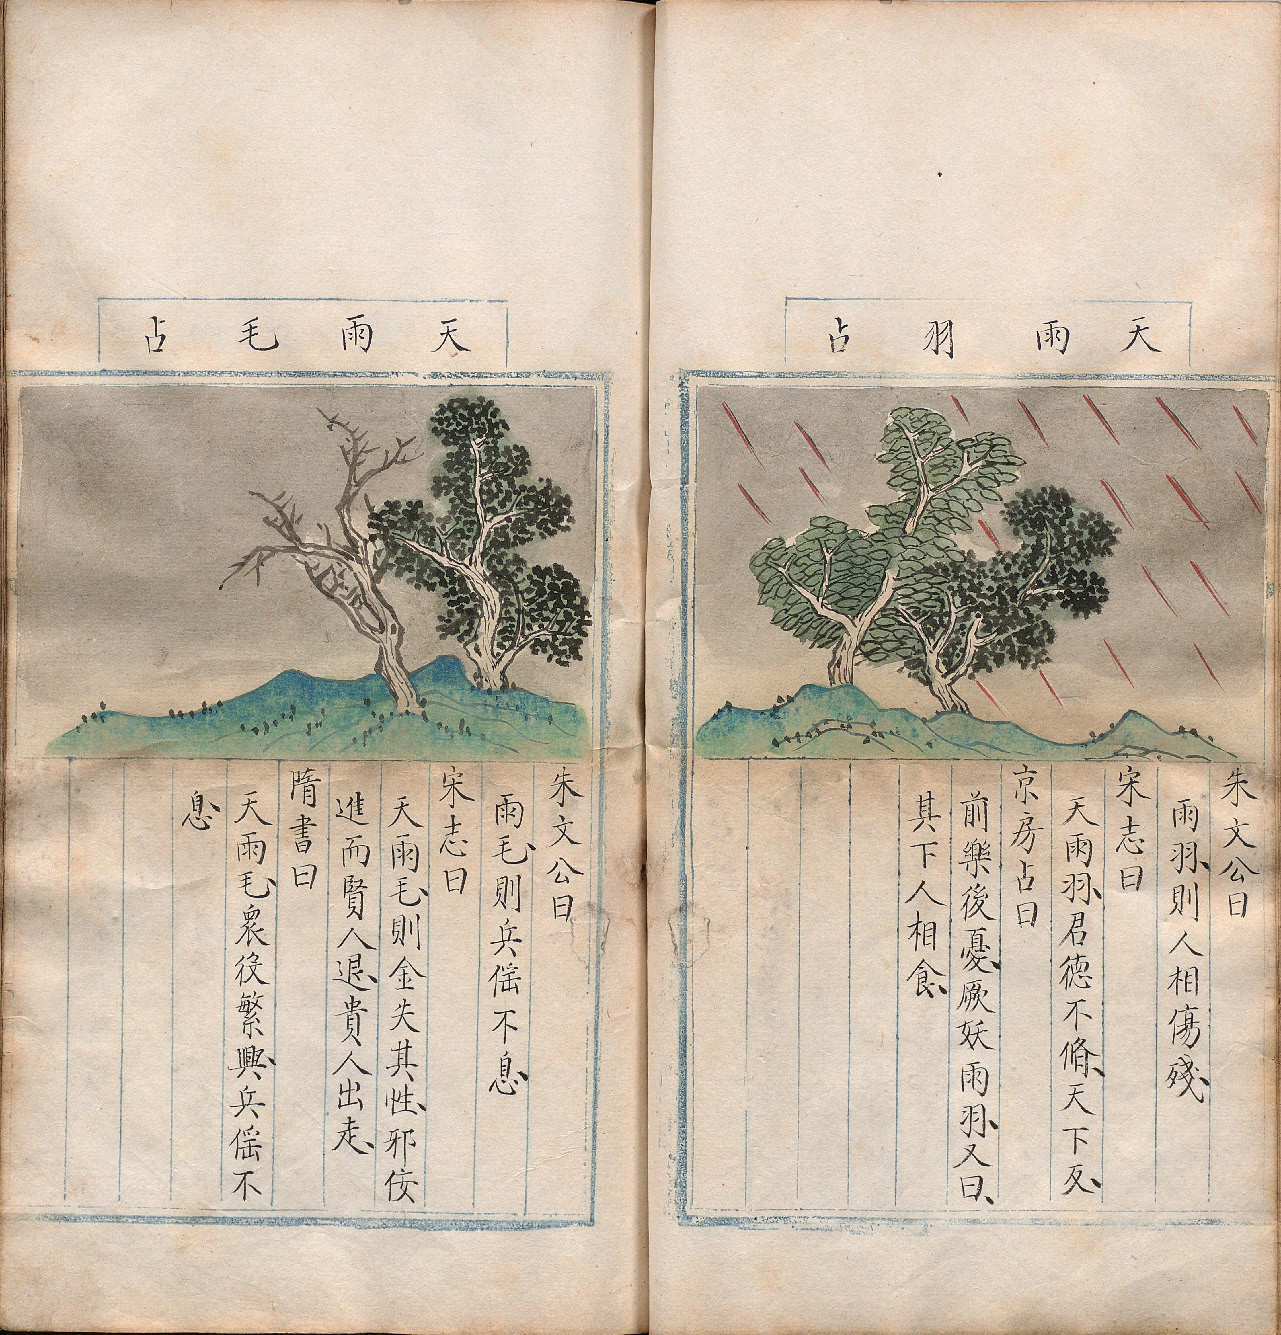 天雨羽占
朱文公曰
雨羽則人相傷殘
宋志曰
天雨羽君德不脩天下反
京房占曰
前樂後憂厥妖雨羽又曰
其下人相食
天雨毛占
朱文公曰
雨毛則兵傜不息
宋志曰
天雨毛則金失其性邪佞
進而賢人退貴人出走
隋書曰
天雨毛眾役繁興兵傜不
息